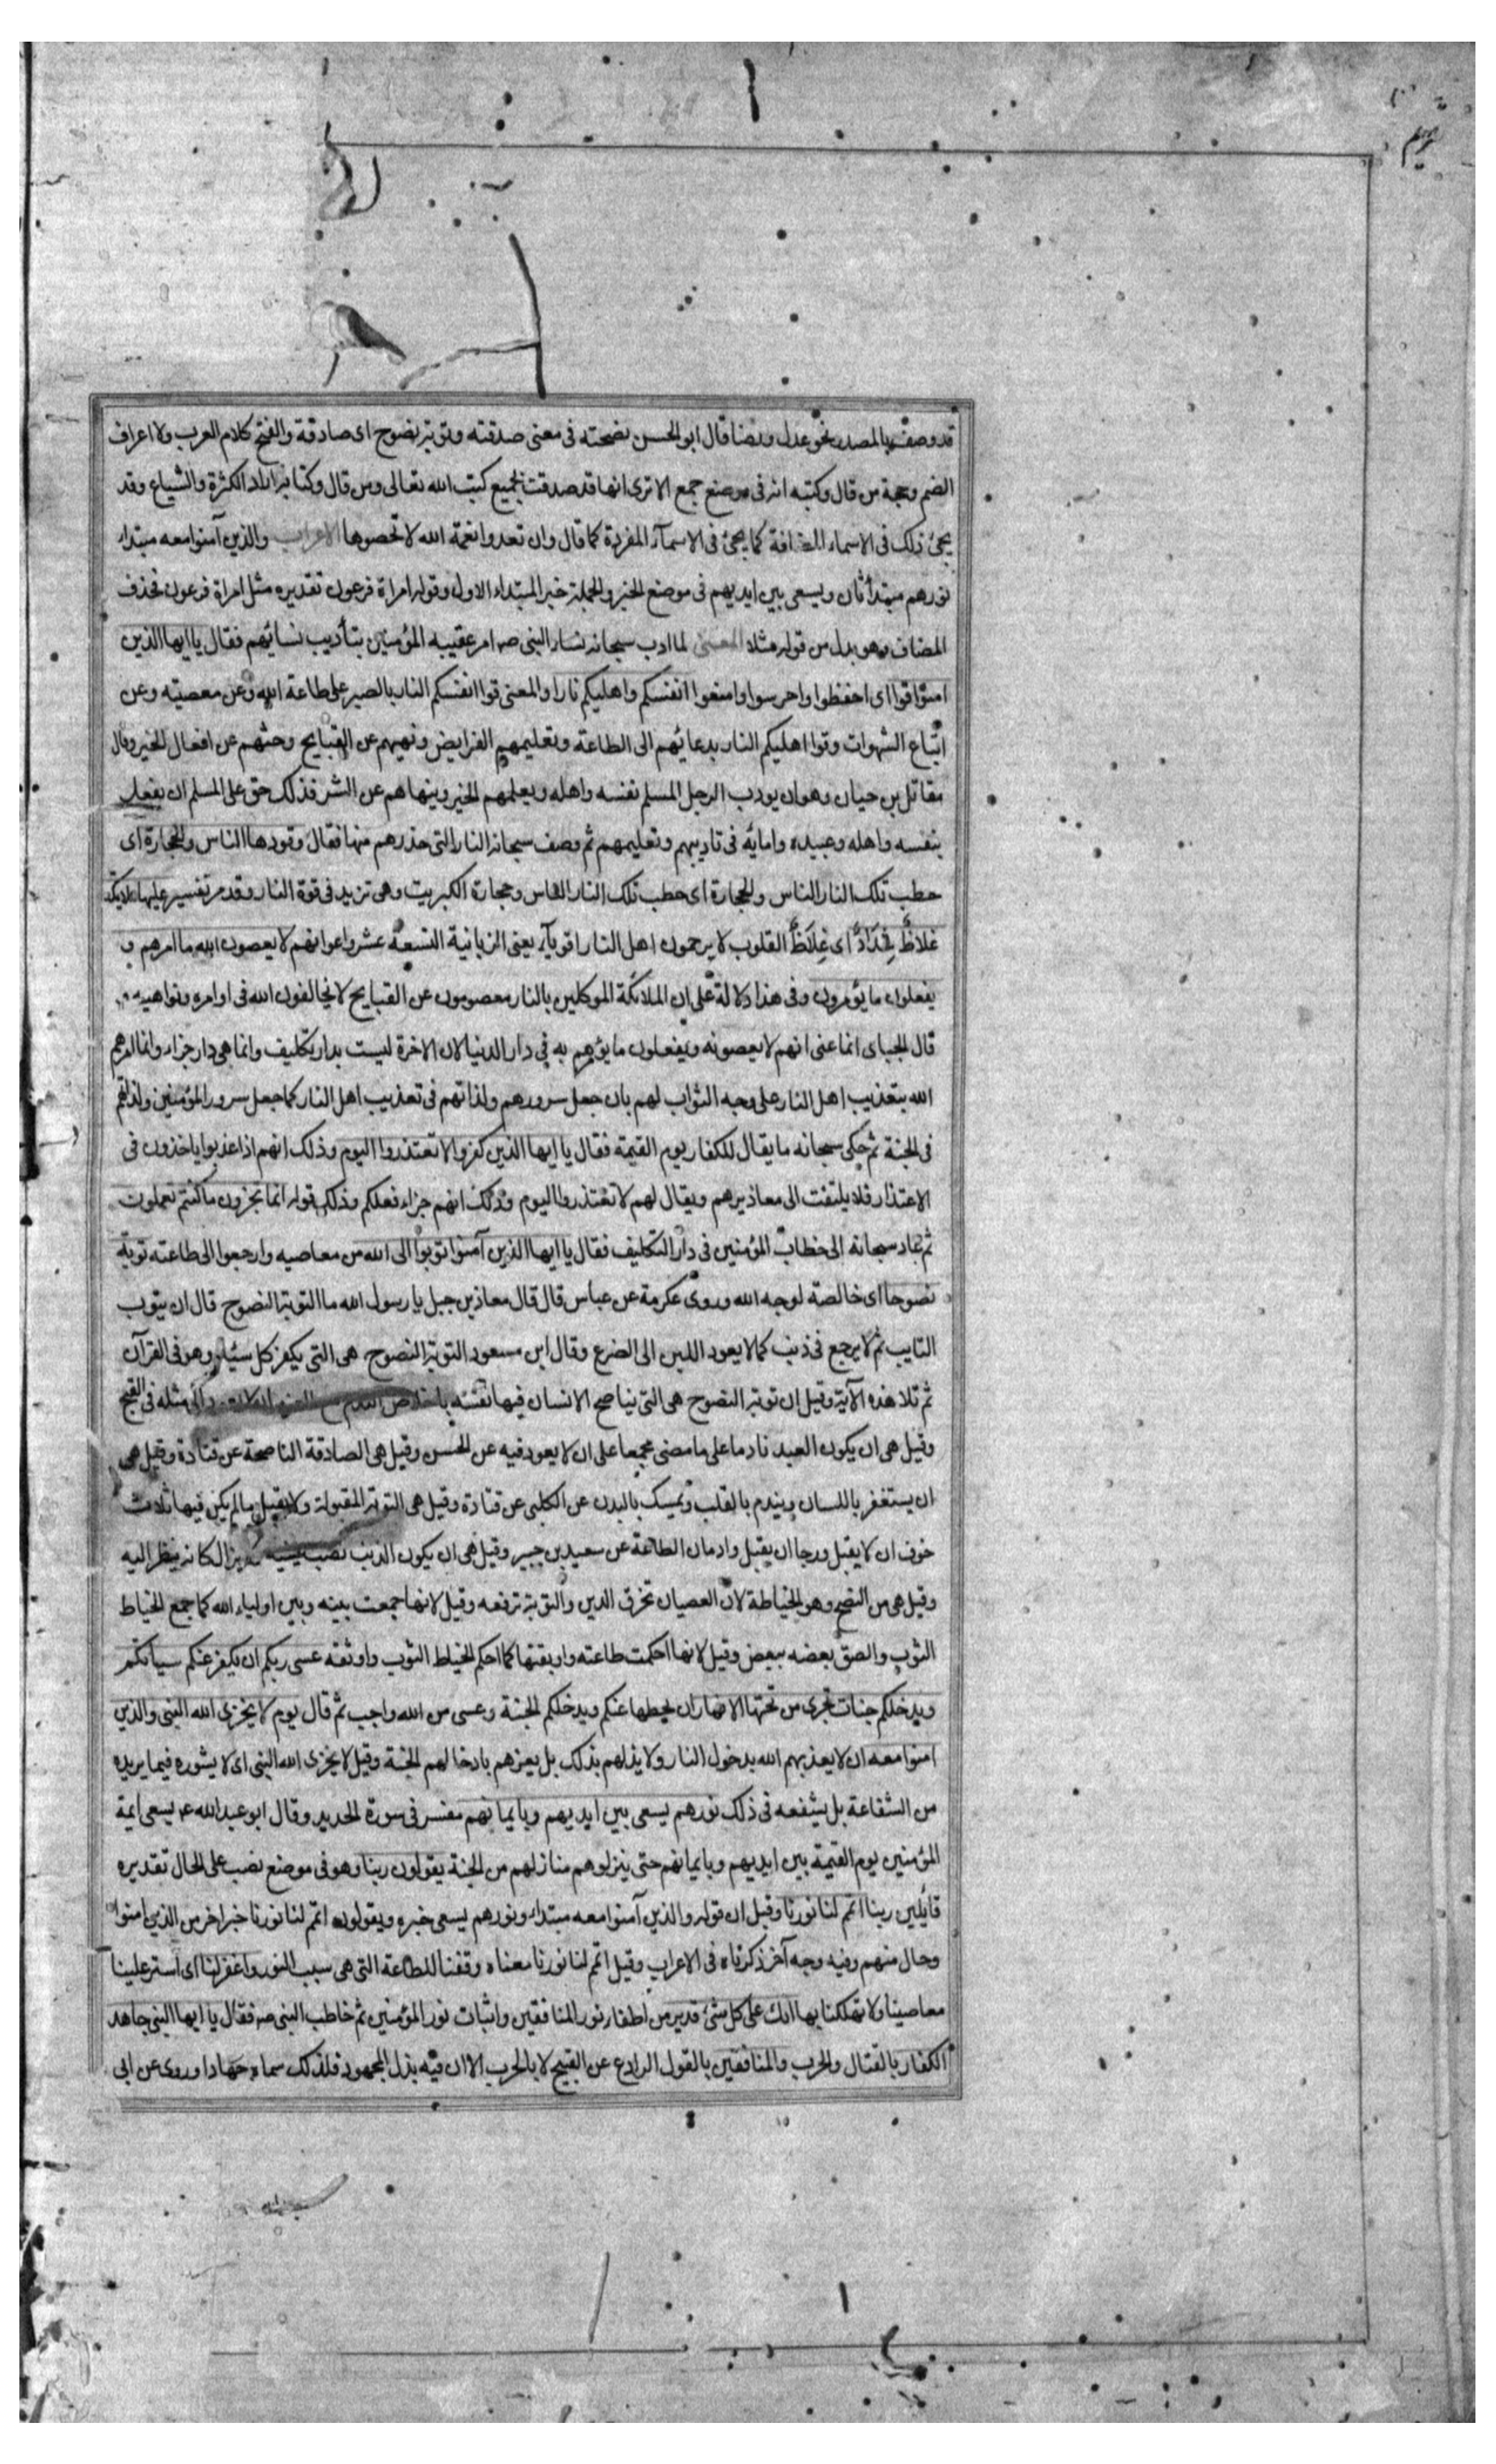 تحريم
قد وصف بالمصدر نحو عدل ورضا قال ابو الحسن نصحته فى معنى صدقته وتوبة نصوح اى صادقة والفتح كلام العرب ولا اعرف
الضم وحجة من قال وكتبه انه فى موضع جمع الا ترى انها قد صدقت بجميع كتب الله تعالى ومن قال وكتابه اراد الكثرة والشياع وقد
يجئ ذلك فى الاسماء المضافة كما يجئ فى الاسمآء المفردة كما قال وان تعدوا نعمة الله لا تحصوها الاعراب والذين آمنوا معه مبتداء
نورهم مبتدأ ثان ويسعى بين ايديهم فى موضع الخبر والجملة خبر المبتداء الاول وقوله امراة فرعون تقديره مثل امراة فرعون فحذف
المضاف وهو بدل من قوله مثلا المعنى لما ادب سبحانه نساء النبى صه امر عقيبه المؤمنين بتأديب نسائهم فقال يا ايها الذين
امنوا قوا اى احفظوا واحرسوا وامنعوا انفسكم واهليكم نارا والمعنى قوا انفسكم النار بالصبر على طاعة الله وعن معصيته وعن
اتباع الشهوات وقوا اهليكم النار بدعائهم الى الطاعة وتعليمهم الفرايض ونهيهم عن القبايح وحثهم عن افعال الخير وقال
مقاتل بن حيان وهو ان يودب الرجل المسلم نفسه واهله ويعلمهم الخير وينهاهم عن الشر فذلك حق على المسلم ان يفعل
بنفسه واهله وعبيده وامائه فى تاديبهم وتعليمهم ثم وصف سبحانه النار التى حذرهم منها فقال وقودها الناس والحجارة اى
حطب تلك النار الناس والحجارة اى حطب تلك النار الناس وحجارة الكبريت وهى تزيد فى قوة النار وقد مر تفسير عليها ملايكة
غلاظ شداد اى غلاظ القلوب لا يرحمون اهل النار اقويآء يعنى الزبانية التسعة عشر واعوانهم لا يعصون الله ما امرهم و
يفعلون ما يؤمرون وفى هذا دلالة على ان الملائكة الموكلين بالنار معصومون عن القبايح لا يخالفون الله فى اوامره ونواهيه
قال الجباى انما عنى انهم لا يعصونه ويفعلون ما يؤمرهم به فى دار الدنيا لان الاخرة ليست بدار تكليف وانما هى دار جزاء وانما امرهم
الله بتعذيب اهل النار على وجه الثواب لهم بان جعل سرورهم ولذاتهم فى تعذيب اهل النار كما جعل سرور المؤمنين ولذاتهم
فى الجنة ثم حكى سبحانه ما يقال للكفار يوم القيمة فقال يا ايها الذين كفروا لا تعتذروا اليوم وذلك انهم اذا عذبوا ياخذون فى
الاعتذار فلا يلتفت الى معاذيرهم ويقال لهم لا تعتذروا اليوم وذلك انهم جزاء فعلكم وذلك قوله انما تجزون ما كنتم تعملون
ثم عاد سبحانه الى خطاب المؤمنين فى دار التكليف فقال يا ايها الذين آمنوا توبوا الى الله من معاصيه وارجعوا الى طاعته توبة
نصوحا اى خالصة لوجه الله وروى عكرمة عن عباس قال قال معاذ بن جبل يا رسول الله ما التوبة النصوح قال ان يتوب
التايب ثم لا يرجع فى ذنب كما لا يعود اللبن الى الضرع وقال ابن مسعود التوبة النصوح هى التى يكفر كل سيئة وهو فى القرآن
ثم تلا هذه الآية وقيل ان توبة النصوح هى التى يناصح الانسان فيها نفسه باخلاص الندم مع العزم ان لا يعود الى مثله فى القبح
وقيل هى ان يكون العبد نادما على ما مضى مجمعا على ان لا يعود فيه عن الحسن وقيل هى الصادقة الناصحة عن قتادة وقيل هى
ان يستغفر باللسان ويندم بالقلب وتمسك بالبدن عن الكلبى عن قتادة وقيل هى التوبة المقبولة ولا يقبل ما لم يكن فيها ثلاث
خوف ان لا يقبل ورجا ان يقبل وادمان الطاعة عن سعيد بن جبير وقيل هى ان يكون الذنب نصب عينيه ولا يزال كانه ينظر اليه
وقيل هى من النصح وهو الخياطة لان العصيان تخرق الدين والتوبة ترقعه وقيل لانها جمعت بينه وبين اولياء الله كما جمع الخياط
الثوب والصق بعضه ببعض وقيل لانها احكمت طاعته واوثقتها كما احكم الخياط الثوب واوثقه عسى ربكم ان يكفر عنكم سيأتكم
ويدخلكم جنات تجرى من تحتها الانهار ان يحطها عنكم ويدخلكم الجنة وعسى من الله واجب ثم قال يوم لا يخزى الله النبى والذين
امنوا معه ان لا يعذبهم الله بدخول النار ولا يذلهم بذلك بل يعزهم بادخالهم الجنة وقيل لا يخزى الله النبى اى لا يشوره فيما يريده
من الشفاعة بل يشفعه فى ذلك نورهم يسعى بين ايديهم وبايمانهم مفسر فى سورة الحديد وقال ابو عبدالله ع يسعى ايمة
المؤمنين يوم القيمة بين ايديهم وبايمانهم حتى ينزلوهم منازلهم من الجنة يقولون ربنا وهو فى موضع نصب على الحال تقديره
قائلين ربنا اتمم لنا نورنا وقيل ان قوله والذين آمنوا معه مبتداء ونورهم يسعى خبره ويقولون اتمم لنا نورنا خبر اخر من الذين امنوا
وحال منهم وفيه وجه آخر ذكرناه فى الاعراب وقيل اتمم لنا نورنا معناه وفقنا للطاعة التى هى سبب النور واغفر لنا اى استر علينا
معاصينا ولا تهلكنا بها انك على كل شئ قدير من اطفاء نور المنافقين واثبات نور المؤمنين ثم خاطب النبى صه فقال يا ايها النبى جاهد
الكفار بالقتال والحرب والمنافقين بالقول الرادع عن القبيح لا بالحرب الا ان فيه بذل المجهود فلذلك سماه جهادا وروى عن ابى